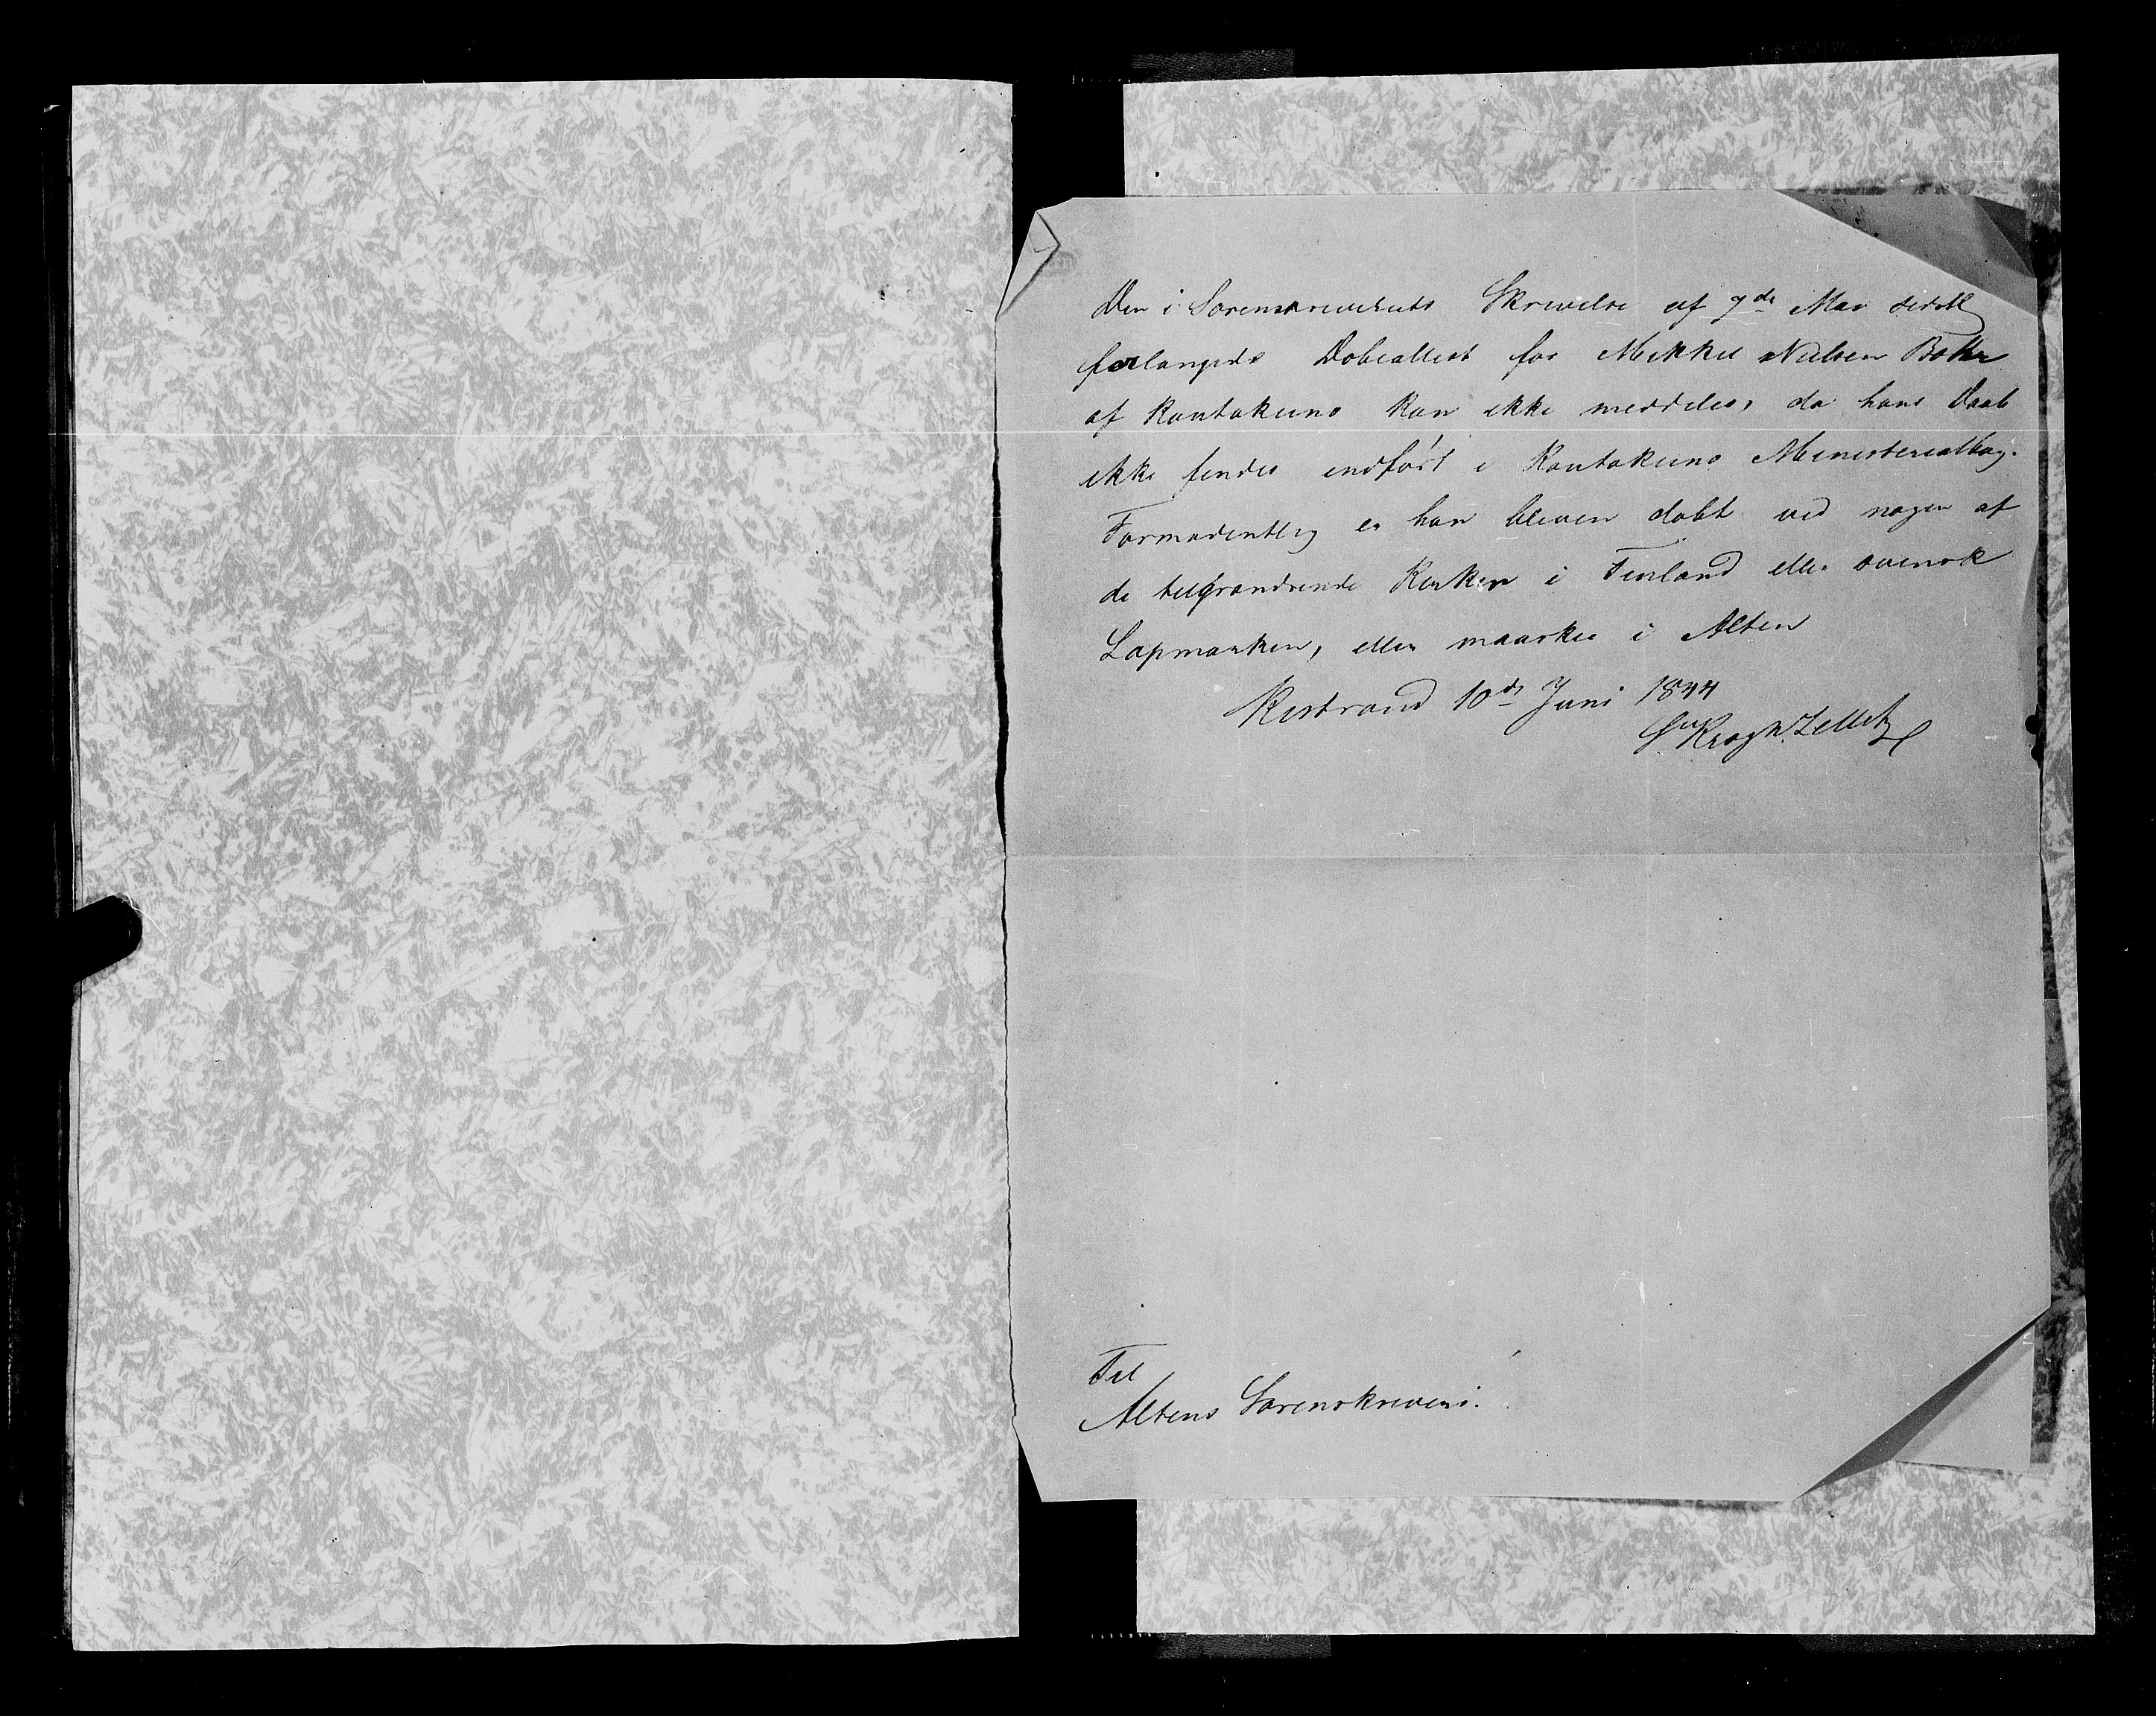 Den i Sorenskriveriets Skrivelse af 7de Mai sidstl
forlangede Dobeattest for Mikkel Nielsen
af Kautokeino kan ikke meddeles, da hans Daab
ikke findes indført i Kautokeino Ministerialbog.
Formodentlig er han bleven døbt ved nogen af
de tilgrændsende Kirker i Finland eller svensk
Lapmarken, eller maaskee i Alten
Kistrand 10de Juni 1844
Krogh Zetlitz
Til
Altens Sorenskriveri.